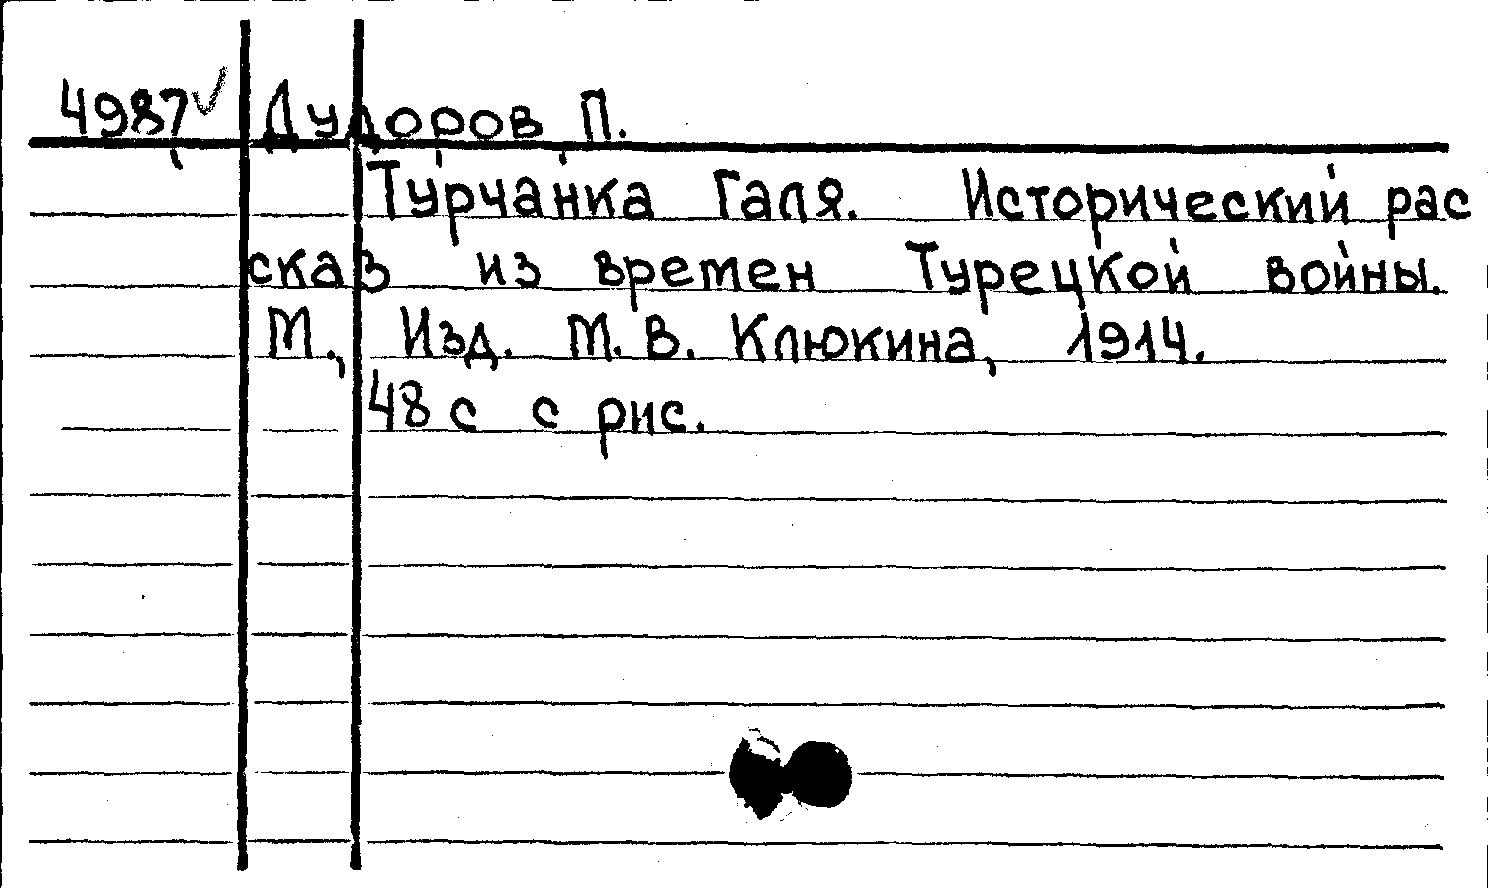 4987 ✓ Дудоров П.
Турчанка Галя. Исторический рас
сказ из времен Турецкой войны.
М., Изд. М. В. Клюкина, 1914.
48 с с рис.